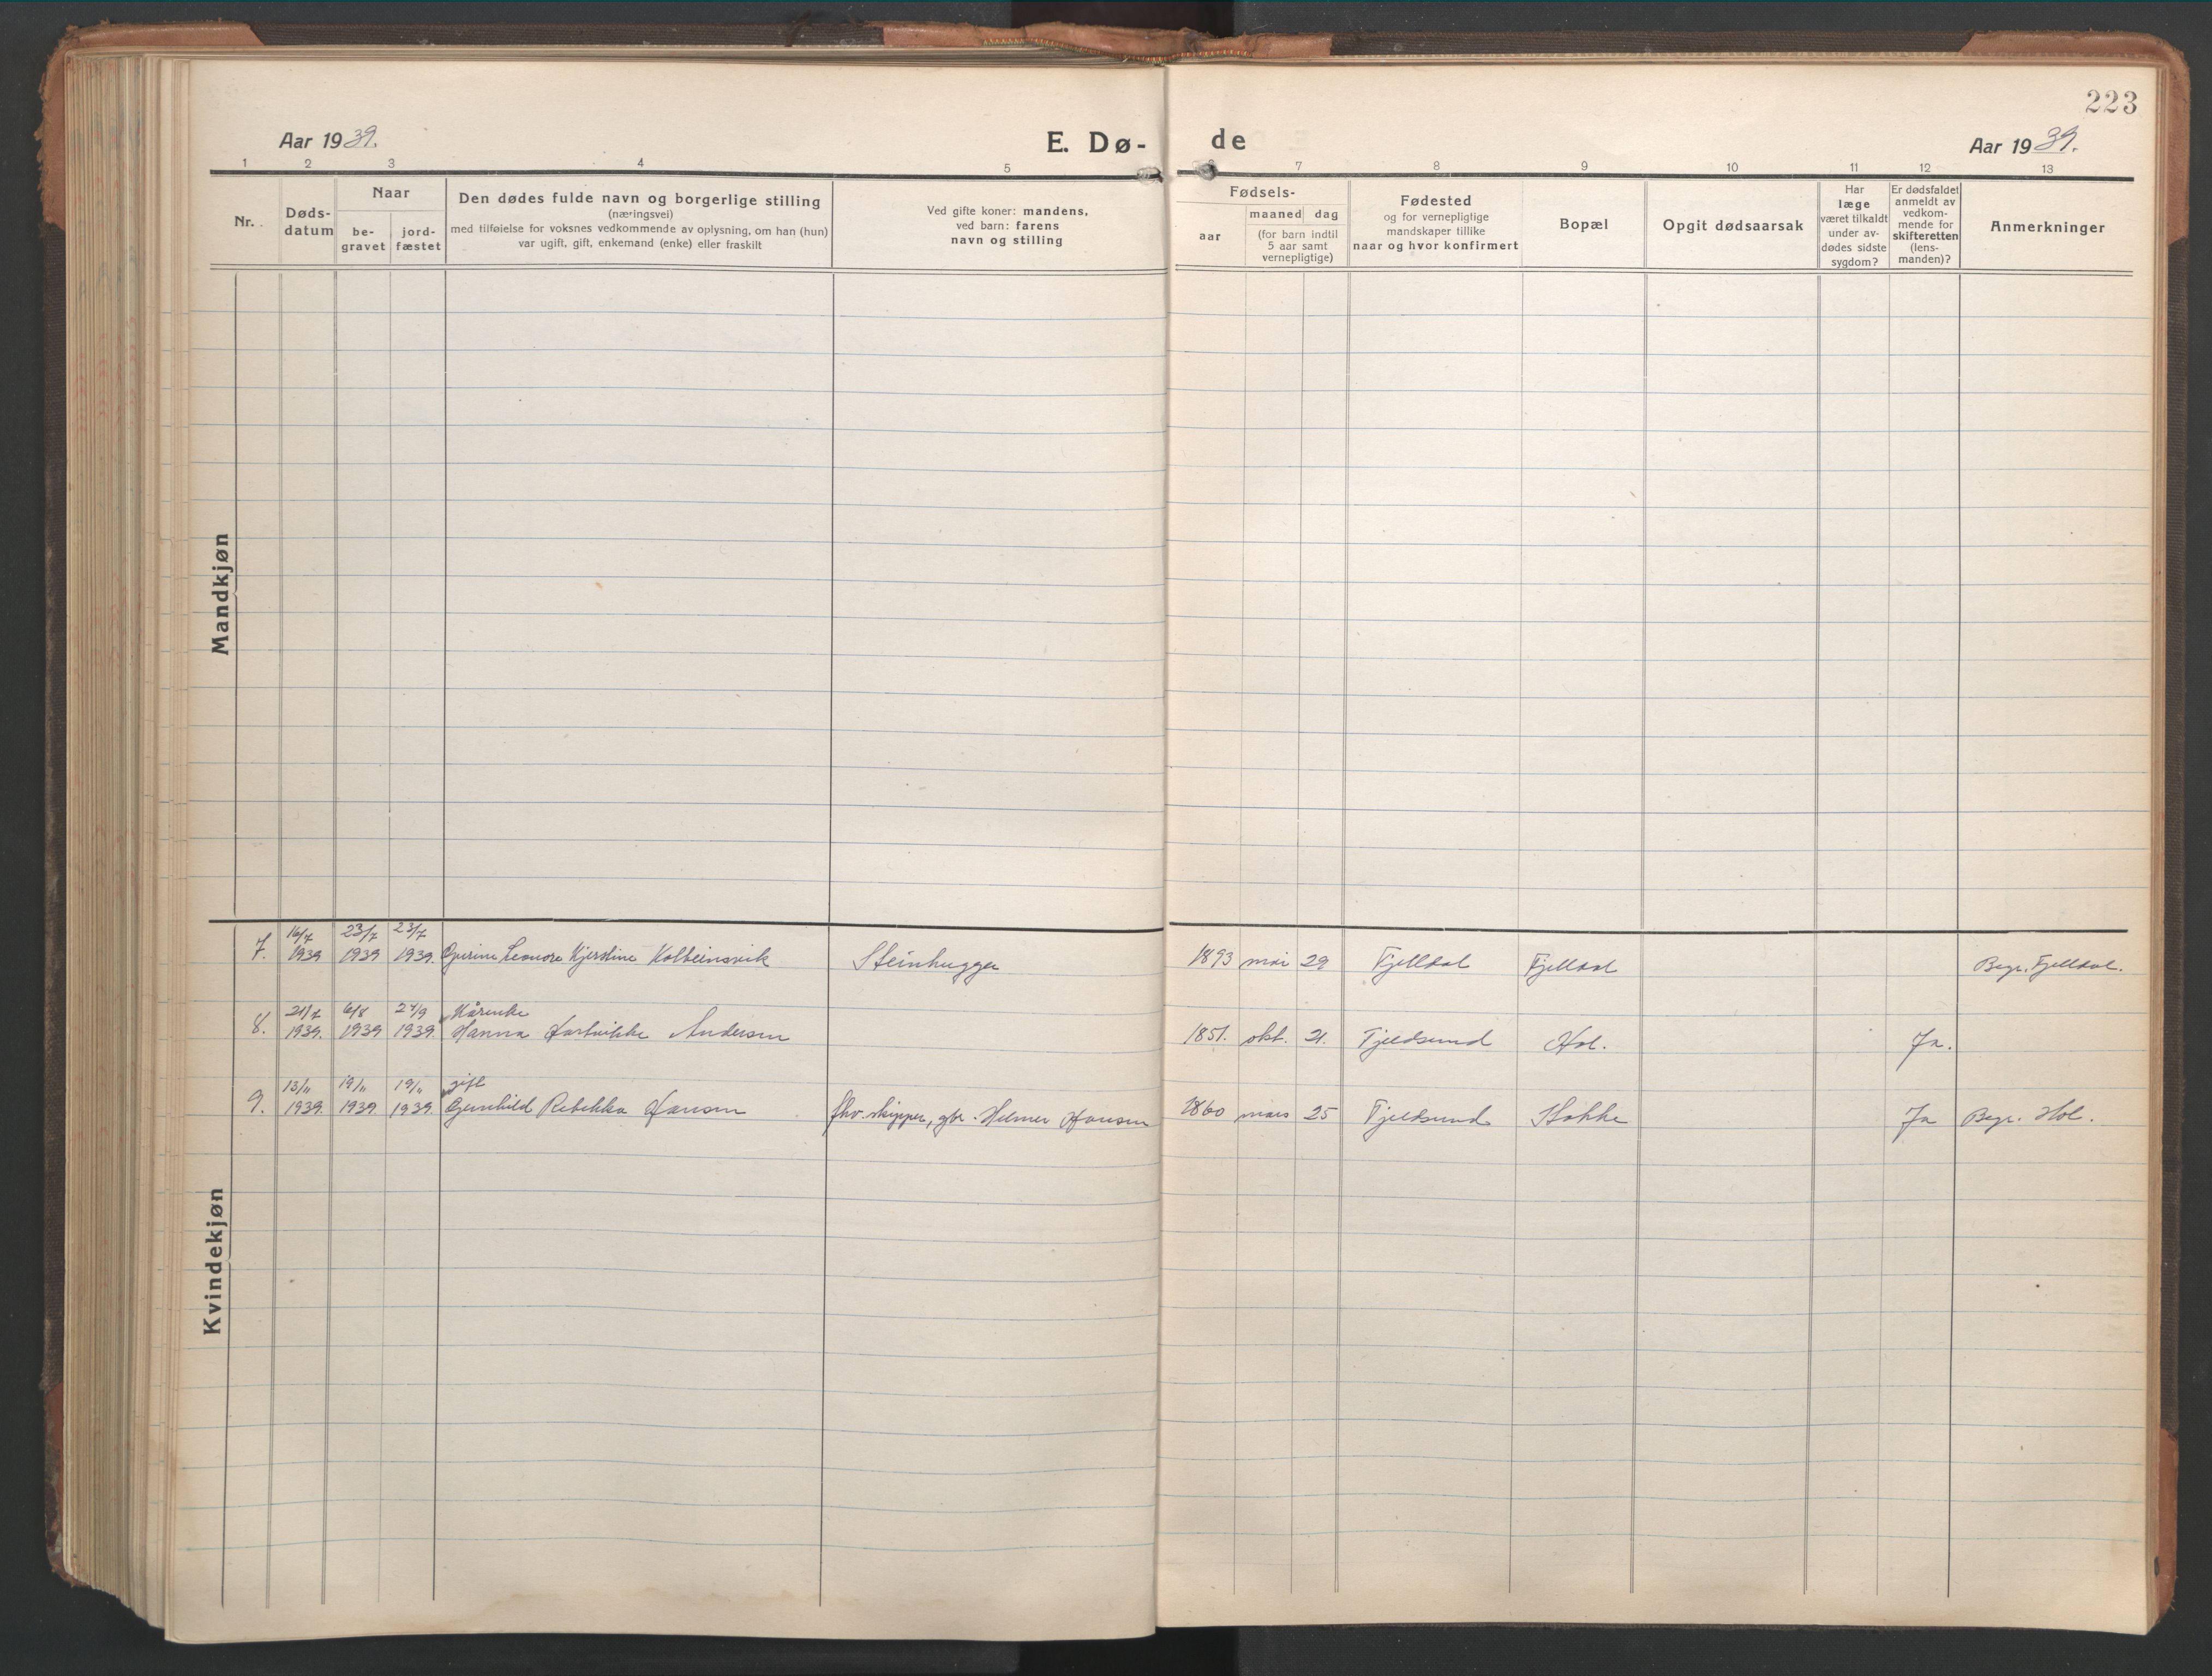 223
Aar 1939.
E. Dø-
de
Aar 1939.
1 2 3 4 5 6 7 8 9 10 11 12 13
Nr.
Døds-
datum
Naar
be-
gravet
jord-
fæstet
Den dødes fulde navn og borgerlige stilling
(næringsvei)
med tilføielse for voksnes vedkommende av oplysning, om han (hun)
var ugift, gift, enkemand (enke) eller fraskilt
Ved gifte koner: mandens,
ved barn: farens
navn og stilling
Fødsels-
aar
maaned dag
(for barn indtil
5 aar samt
vernepligtige)
Fødested
og for vernepligtige
mandskaper tillike
naar og hvor konfirmert
Bopæl
Opgit dødsaarsak
Har
læge
været tilkaldt
under av-
dødes sidste
sygdom?
Er dødsfaldet
anmeldt av
vedkom-
mende for
skifteretten
(lens-
manden)?
Anmerkninger
Mandkjøn
16/7 23/7 23/7
7. 1939 1939 1939. Gurine Leonore Kjerstine Kolbeinsvik Steinhugger 1893 mai 29 Fjelldal Fjelldal Begr. Fjelldal.
21/7 6/8 24/9 Kårenke
8. 1939. 1939 1939 Hanna Hartvikke Andersen 1851. okt. 21. Fjeldsund Hol. Ja.
13/11 19/11 19/11 gift
9. 1939. 1939. 1939. Gunhild Rebekka Hansen fhv. skipper, gbr. Helmer Hansen 1860 mars 25 Fjeldsund Stokke Ja Begr. Hol.
Kvindekjøn